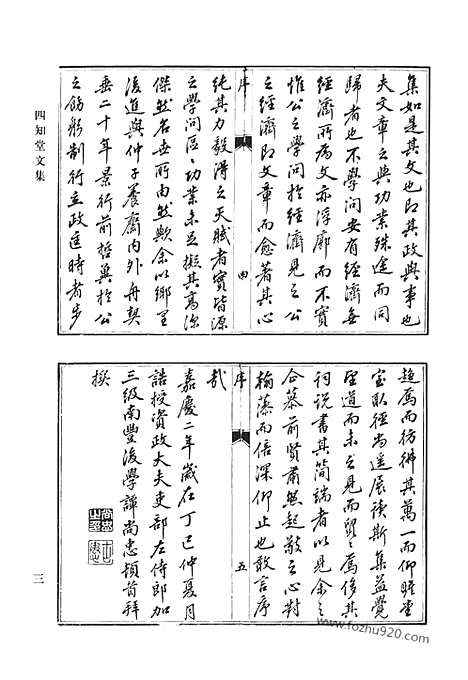 四知堂文集
集如是其文也即其政與事也
夫文章之與功業殊途而同
歸者也不學問安有經濟無
經濟所為文亦浮廓而不實
惟公之學問於經濟見之公
之經濟即文章而愈著其心
序 四
純其力毅得之天賦者實皆源
之學問區〻功業未足擬其高深
傑然名世所由然歟余以鄉里
後進與仲子養齋內外舟契
垂二十年景行前哲冀於公
之飭躬制行立政匡時者步
趨焉而彷彿其萬一而仰瞻堂
室徑尚遙展讀斯集益覺
望道而未之見而貿〻焉侈其
詞說書其簡端者以見余之
企慕前賢肅然起敬之心對
翰藻而倍深仰止也敢言序
序 五
哉
嘉慶二年歲在丁巳仲夏月
誥授資政大夫吏部左侍郎加
三級南豐後學譚尚忠頓首拜
撰
三
www.fozhu920.com